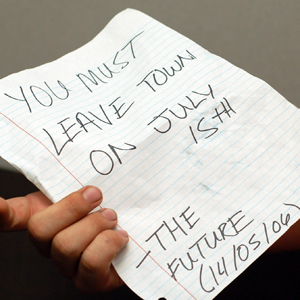 YOU MUST
LEAVE TOWN
ON JULY
15TH
-THE
FUTURE
(14/05/06)